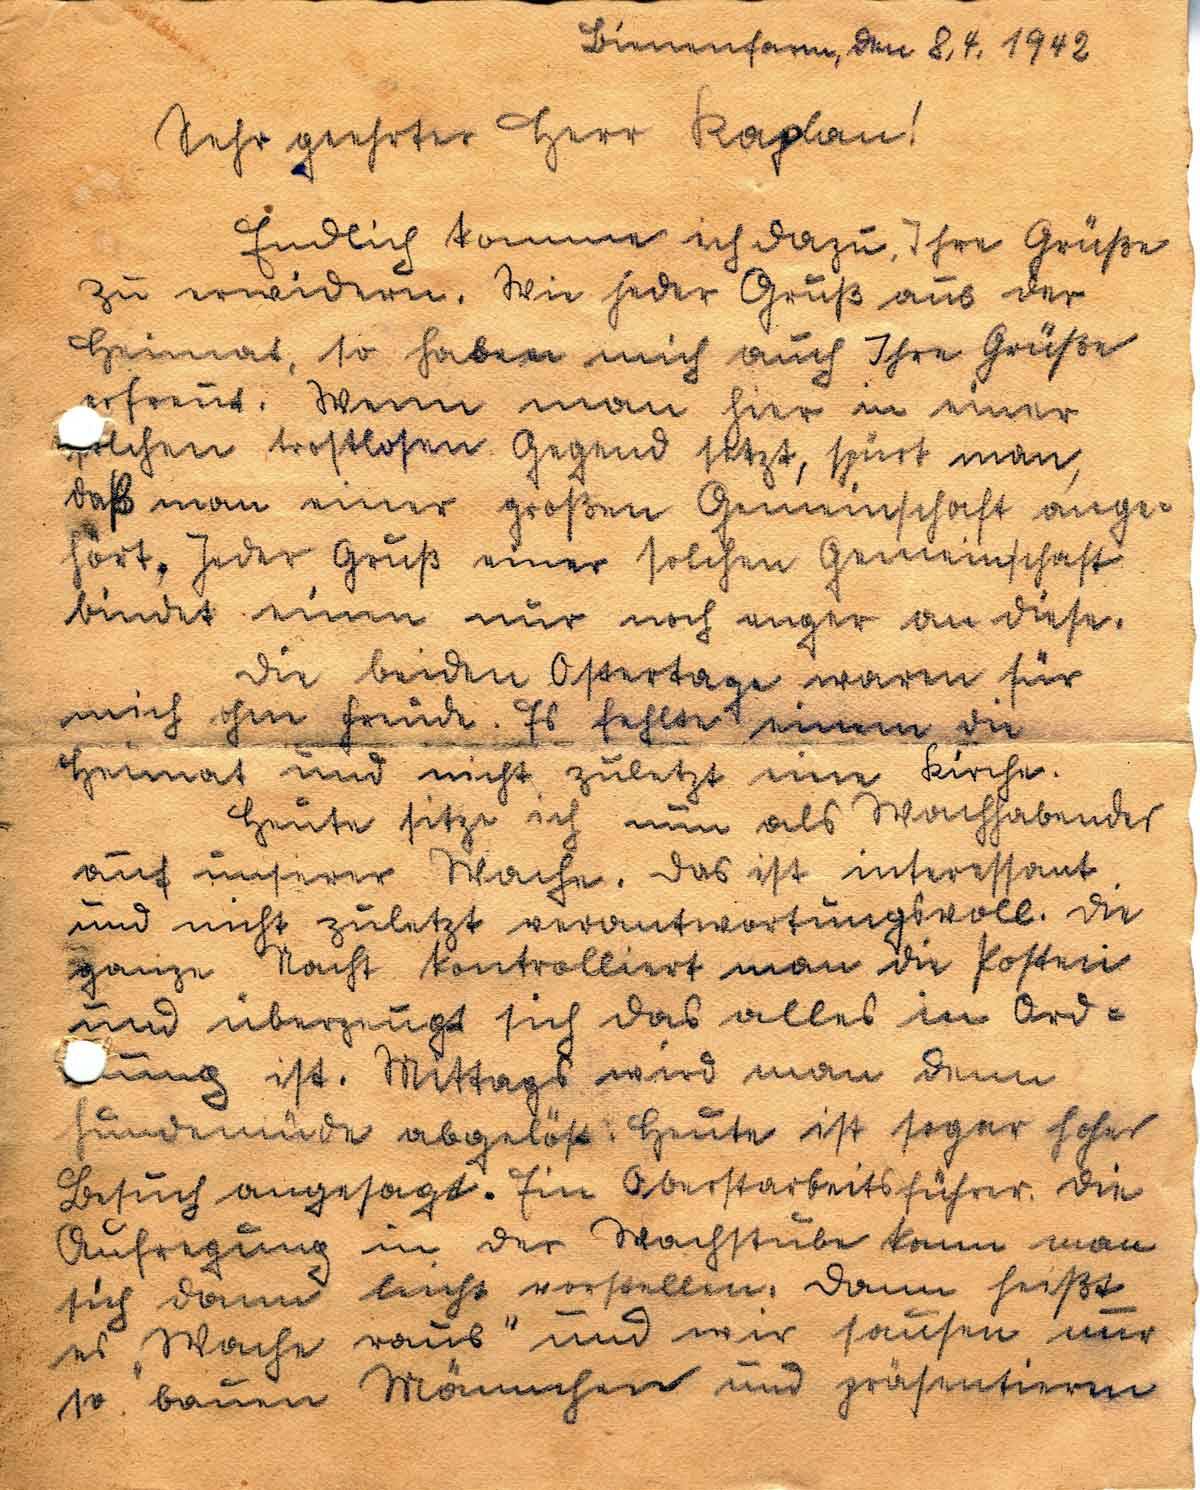 Bienenfarm, den 8.4. 1942
Sehr geehrter Herr Kaplan!
Endlich komme ich dazu, Ihre Grüße
zu erwidern. Wie jeder Gruß aus der
Heimat, so haben mich auch Ihre Grüße
erfreut. Wenn man hier in einer
solchen trostlosen Gegend sitzt, spürt man,
daß man einer großen Gemeinschaft ange-
hört. Jeder Gruß einer solchen Gemeinschaft
bindet einen nur noch enger an diese.
Die beiden Ostertage waren für
mich ohne Freude. Es fehlte einem die
Heimat und nicht zuletzt eine Kirche.
Heute sitze ich nun als Wachhabender
auf unserer Wache. Das ist interessant
und nicht zuletzt verantwortungsvoll. Die
ganze Nacht kontrolliert man die Posten
und überzeugt sich das alles in Ord=
nung ist. Mittags wird man denn
hundemüde abgelöst. Heute ist sogar hoher
Besuch angesagt. Ein Oberstarbeitsführer. Die
Aufregung in der Wachstube kann man
sich dann leicht vorstellen. Dann heißt
es „Wache raus" und wir sausen nur
so, bauen Männchen und präsentieren